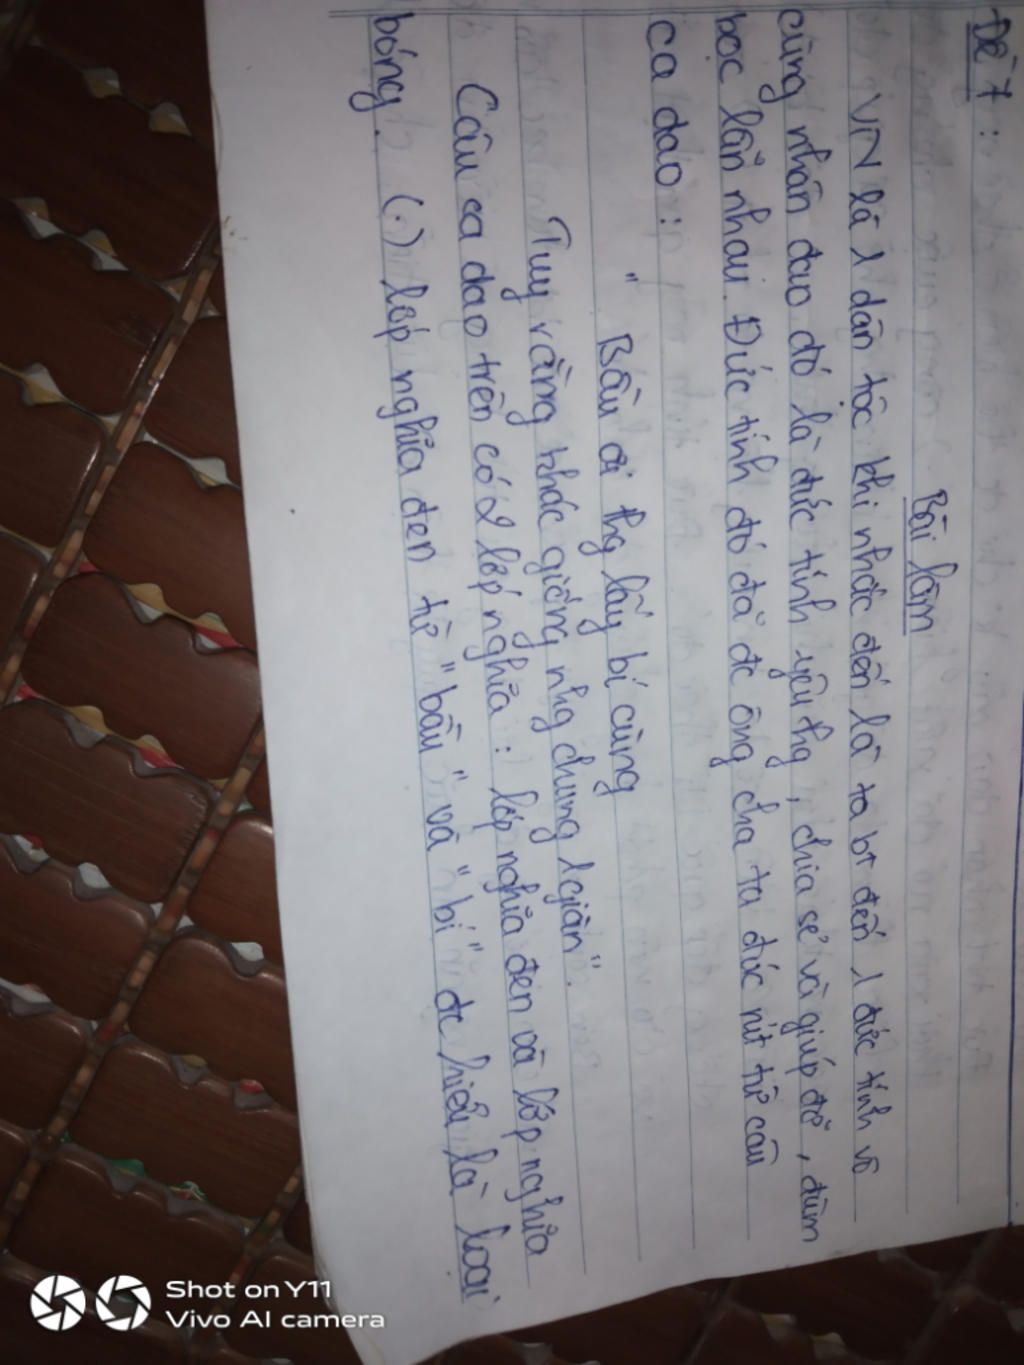 Đề 7:
Bài làm
VN là 1 dân tộc khi nhắc đến là ta bt đến 1 đức tính vô
cùng nhân đạo đó là đức tính yêu thg, chia sẻ và giúp đỡ, đùm
bọc lẫn nhau. Đức tính đó đã đc ông cha ta đúc rút từ câu
ca dao:
" Bầu ơi thg lấy bí cùng
Tuy rằng khác giống nhg chung 1 giàn".
Câu ca dao trên có 2 lớp nghĩa: lớp nghĩa đen và lớp nghĩa
bóng. (.) lớp nghĩa đen từ "bầu" và "bí" đc hiểu là loại
Shot on Y11
Vivo AI camera